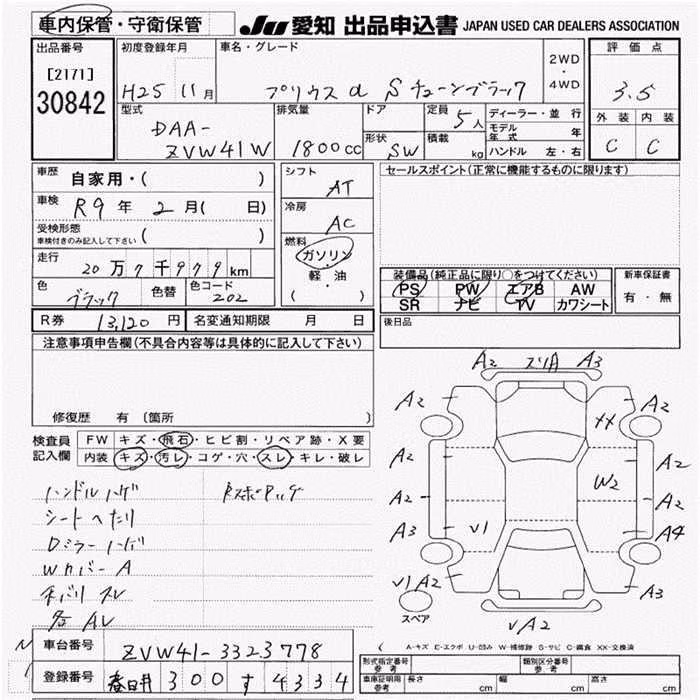 車内保管・守衛保管 JU 愛知 出品申込書 JAPAN USED CAR DEALERS ASSOCIATION
出品番号 [2171] 30842
初度登録年月 H25 11月
車名・グレード プリウスα Sチューンブラック
2WD・4WD
評価点 3.5
外装 内装
C C
型式 DAA-ZVW41W
排気量 1800cc
ドア
形状 SW
定員 5人
積載 kg
ディーラー・並行
モデル年式 年
ハンドル 左・右
車歴 自家用・( )
車検 R9年 2月( 日)
受検形態 車検付きのみ記入して下さい ( )
走行 20万7千979km
色 ブラック 色替 色コード 202
シフト AT
冷房 AC
燃料 ガソリン・軽・油 ( )
セールスポイント(正常に機能するものに限ります)
装備品(純正品に限り○をつけてください)
PS PW エアB AW
SR ナビ TV カワシート
新車保証書 有・無
R券 13,120円 名変通知期限 月 日
後日品
注意事項申告欄(不具合内容等は具体的に記入して下さい)
修復歴 有〔箇所 〕
検査員記入欄
FW キズ・飛石・ヒビ割・リペア跡・X要
内装 キズ・汚レ・コゲ・穴・スレ・キレ・破レ
ハンドルハゲ
シートヘタリ
Dミラーハゲ
WカバーA
各AL
A2 スリA A3
A2 XX A2
A2 W2 A2
A2 A2
A3 V1 A4
V1 A2 A3
スペア
VA2
A-キズ E-エクボ U-凹み W-補修跡 S-サビ C-腐食 XX-交換済
車台番号 ZVW41-3323778
登録番号 春日井 300 す 4334
形式指定番号 参考 類別区分番号 参考
車庫証明用 参考 長さ cm 幅 cm 高さ cm